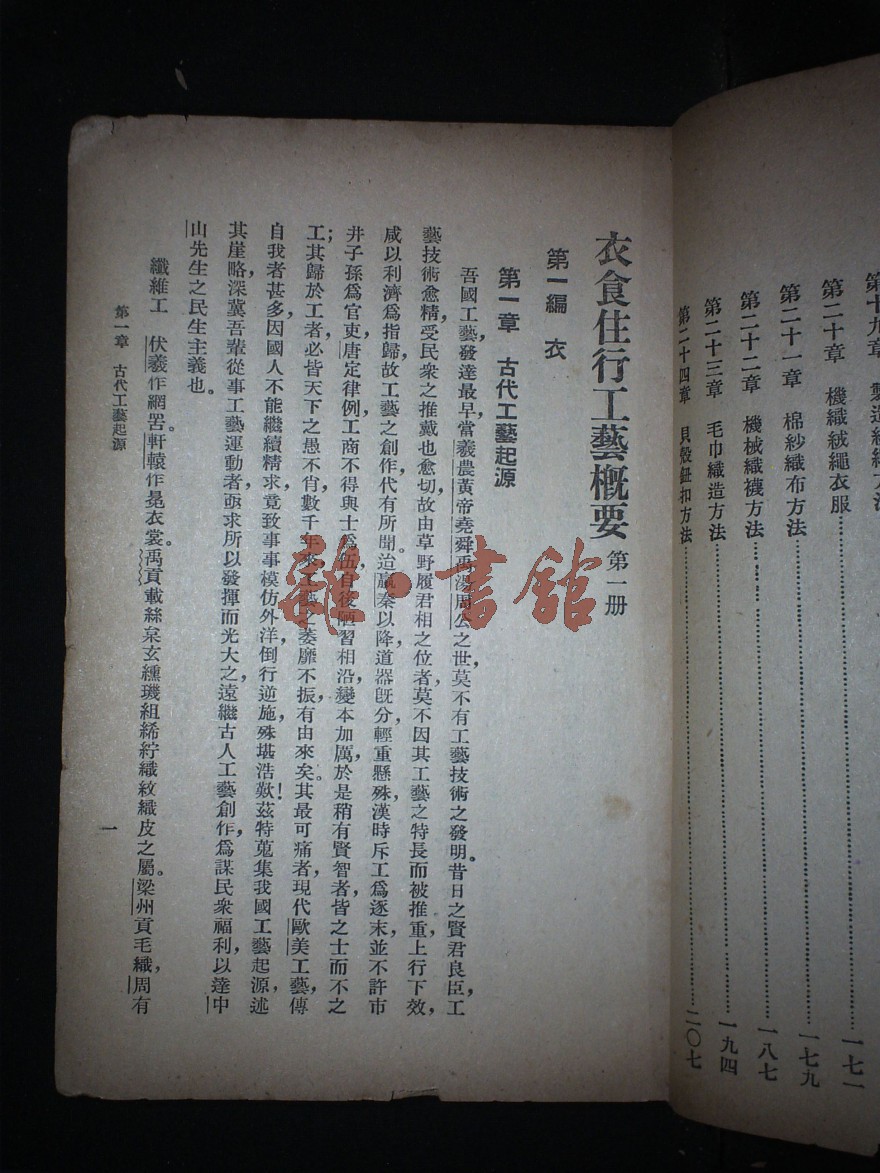 第十九章
第二十章　機織絨繩衣服……一七一
第二十一章　棉紗織布方法……一七九
第二十二章　機械織襪方法……一八七
第二十三章　毛巾織造方法……一九四
第二十四章　貝殼鈕扣方法……二〇七
衣食住行工藝概要 第一册
第一編　衣
第一章　古代工藝起源
吾國工藝，發達最早，當羲農黃帝堯舜禹湯周公之世，莫不有工藝技術之發明。昔日之賢君良臣，工
藝技術愈精，受民衆之推戴也愈切，故由草野履君相之位者，莫不因其工藝之特長而被推重，上行下效，
咸以利濟爲指歸，故工藝之創作，代有所聞。迨嬴秦以降，道器旣分，輕重懸殊，漢時斥工爲逐末，並不許市
井子孫爲官吏，唐定律例，工商不得與士爲伍，自後陋習相沿，變本加厲，於是稍有賢智者，皆之士而不之
工；其歸於工者，必皆天下之愚不肖，數千年來，工藝之萎靡不振，有由來矣。其最可痛者，現代歐美工藝，傳
自我者甚多，因國人不能繼續精求，竟致事事模仿外洋，倒行逆施，殊堪浩歎！茲特蒐集我國工藝起源，述
其崖略，深冀吾輩從事工藝運動者，亟求所以發揮而光大之，遠繼古人工藝創作，爲謀民衆福利，以達中
山先生之民生主義也。
纖維工　伏羲作網罟。軒轅作冕衣裳。禹貢載絲枲玄纁璣組絺紵織紋織皮之屬。梁州貢毛織，周有
第一章　古代工藝起源
一
雜·書館